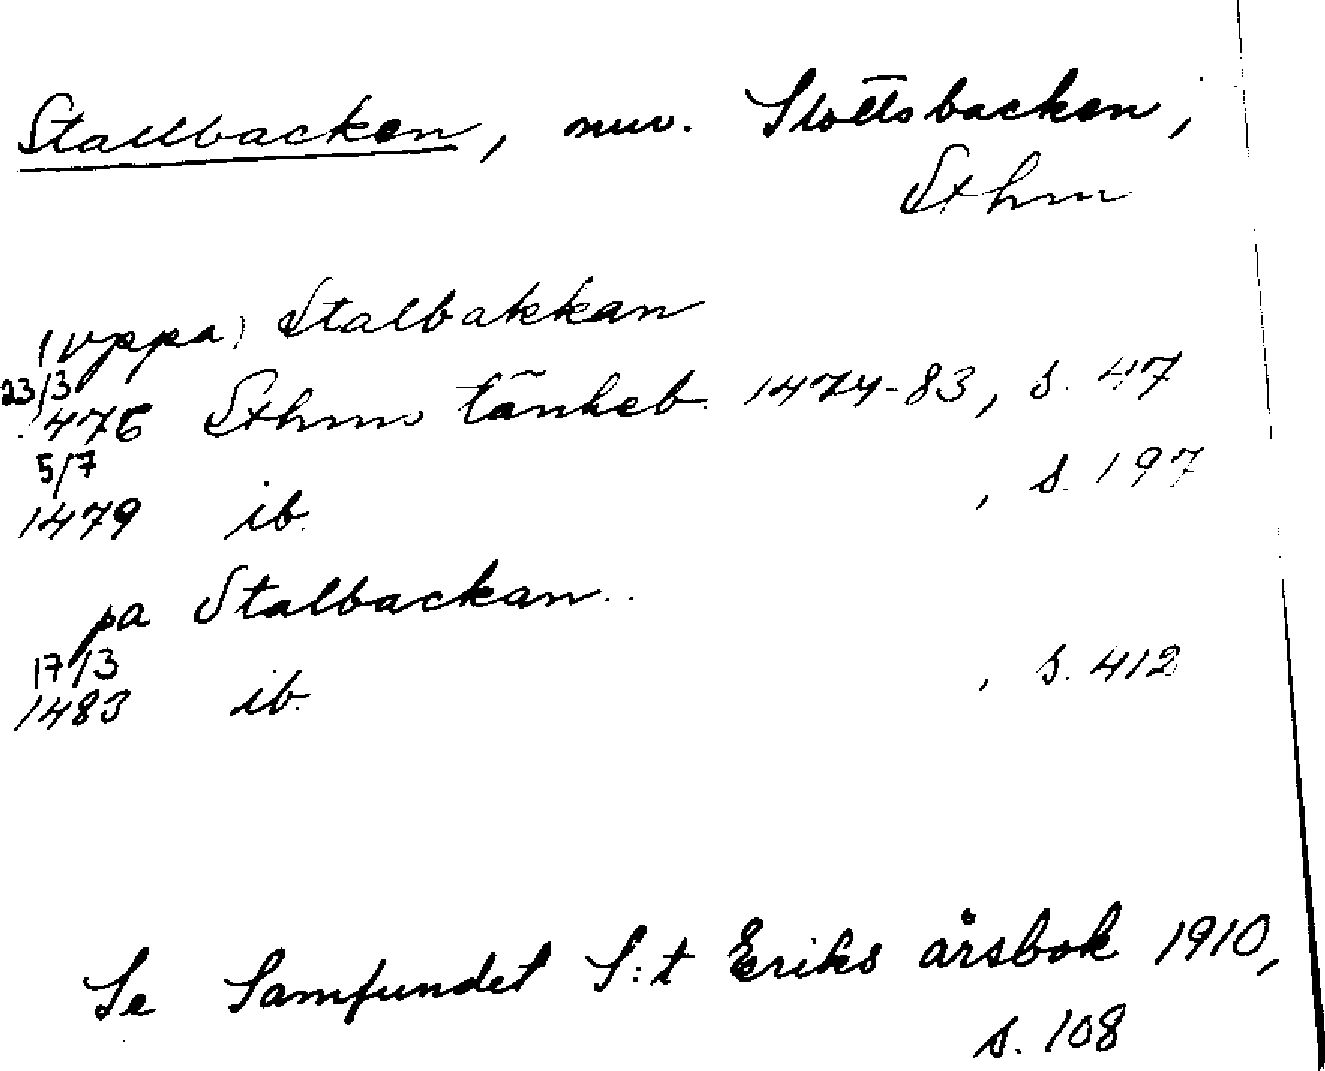 Stallbacken, nuv. Slottsbacken,
Sthm
(vppa) Stalbakkan
23/3
1476 Sthms tänkeb. 1474-83, s. 47
5/7
1479 ib. , s. 197
pa Stalbackan
17/3
1483 ib. , s. 412
Se Samfundet S:t Eriks årsbok 1910,
s. 108